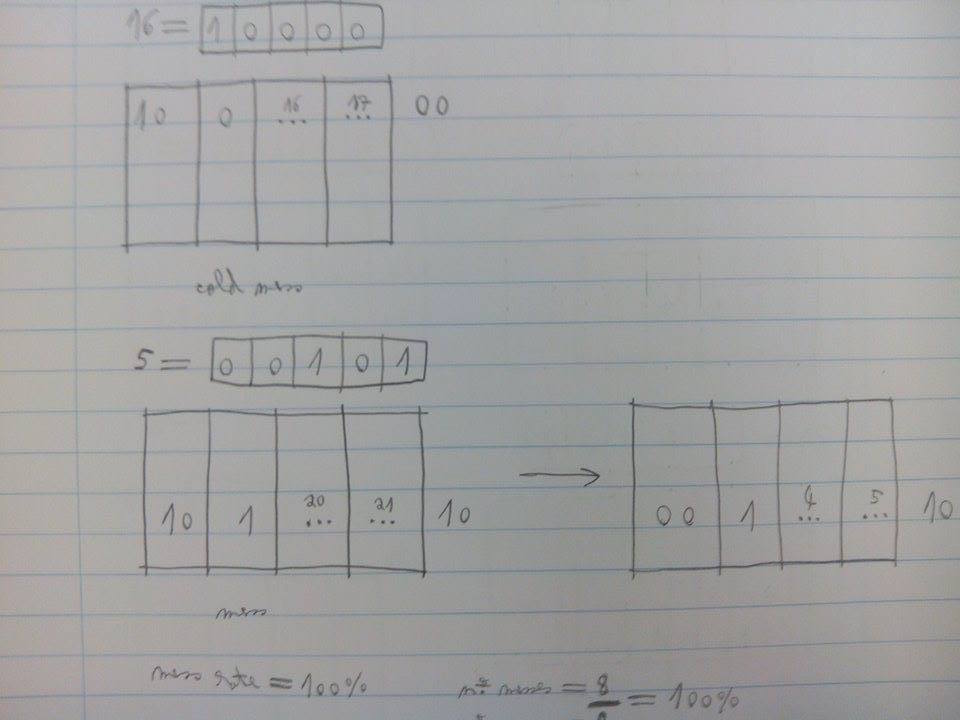 16 = 1 0 0 0 0
16 17
10 0 ... ... 00
cold miss
5 = 0 0 1 0 1
20 21 4 5
10 1 ... ... 10 → 00 1 ... ... 10
miss
miss rate = 100% nº misses = 8 = 100%